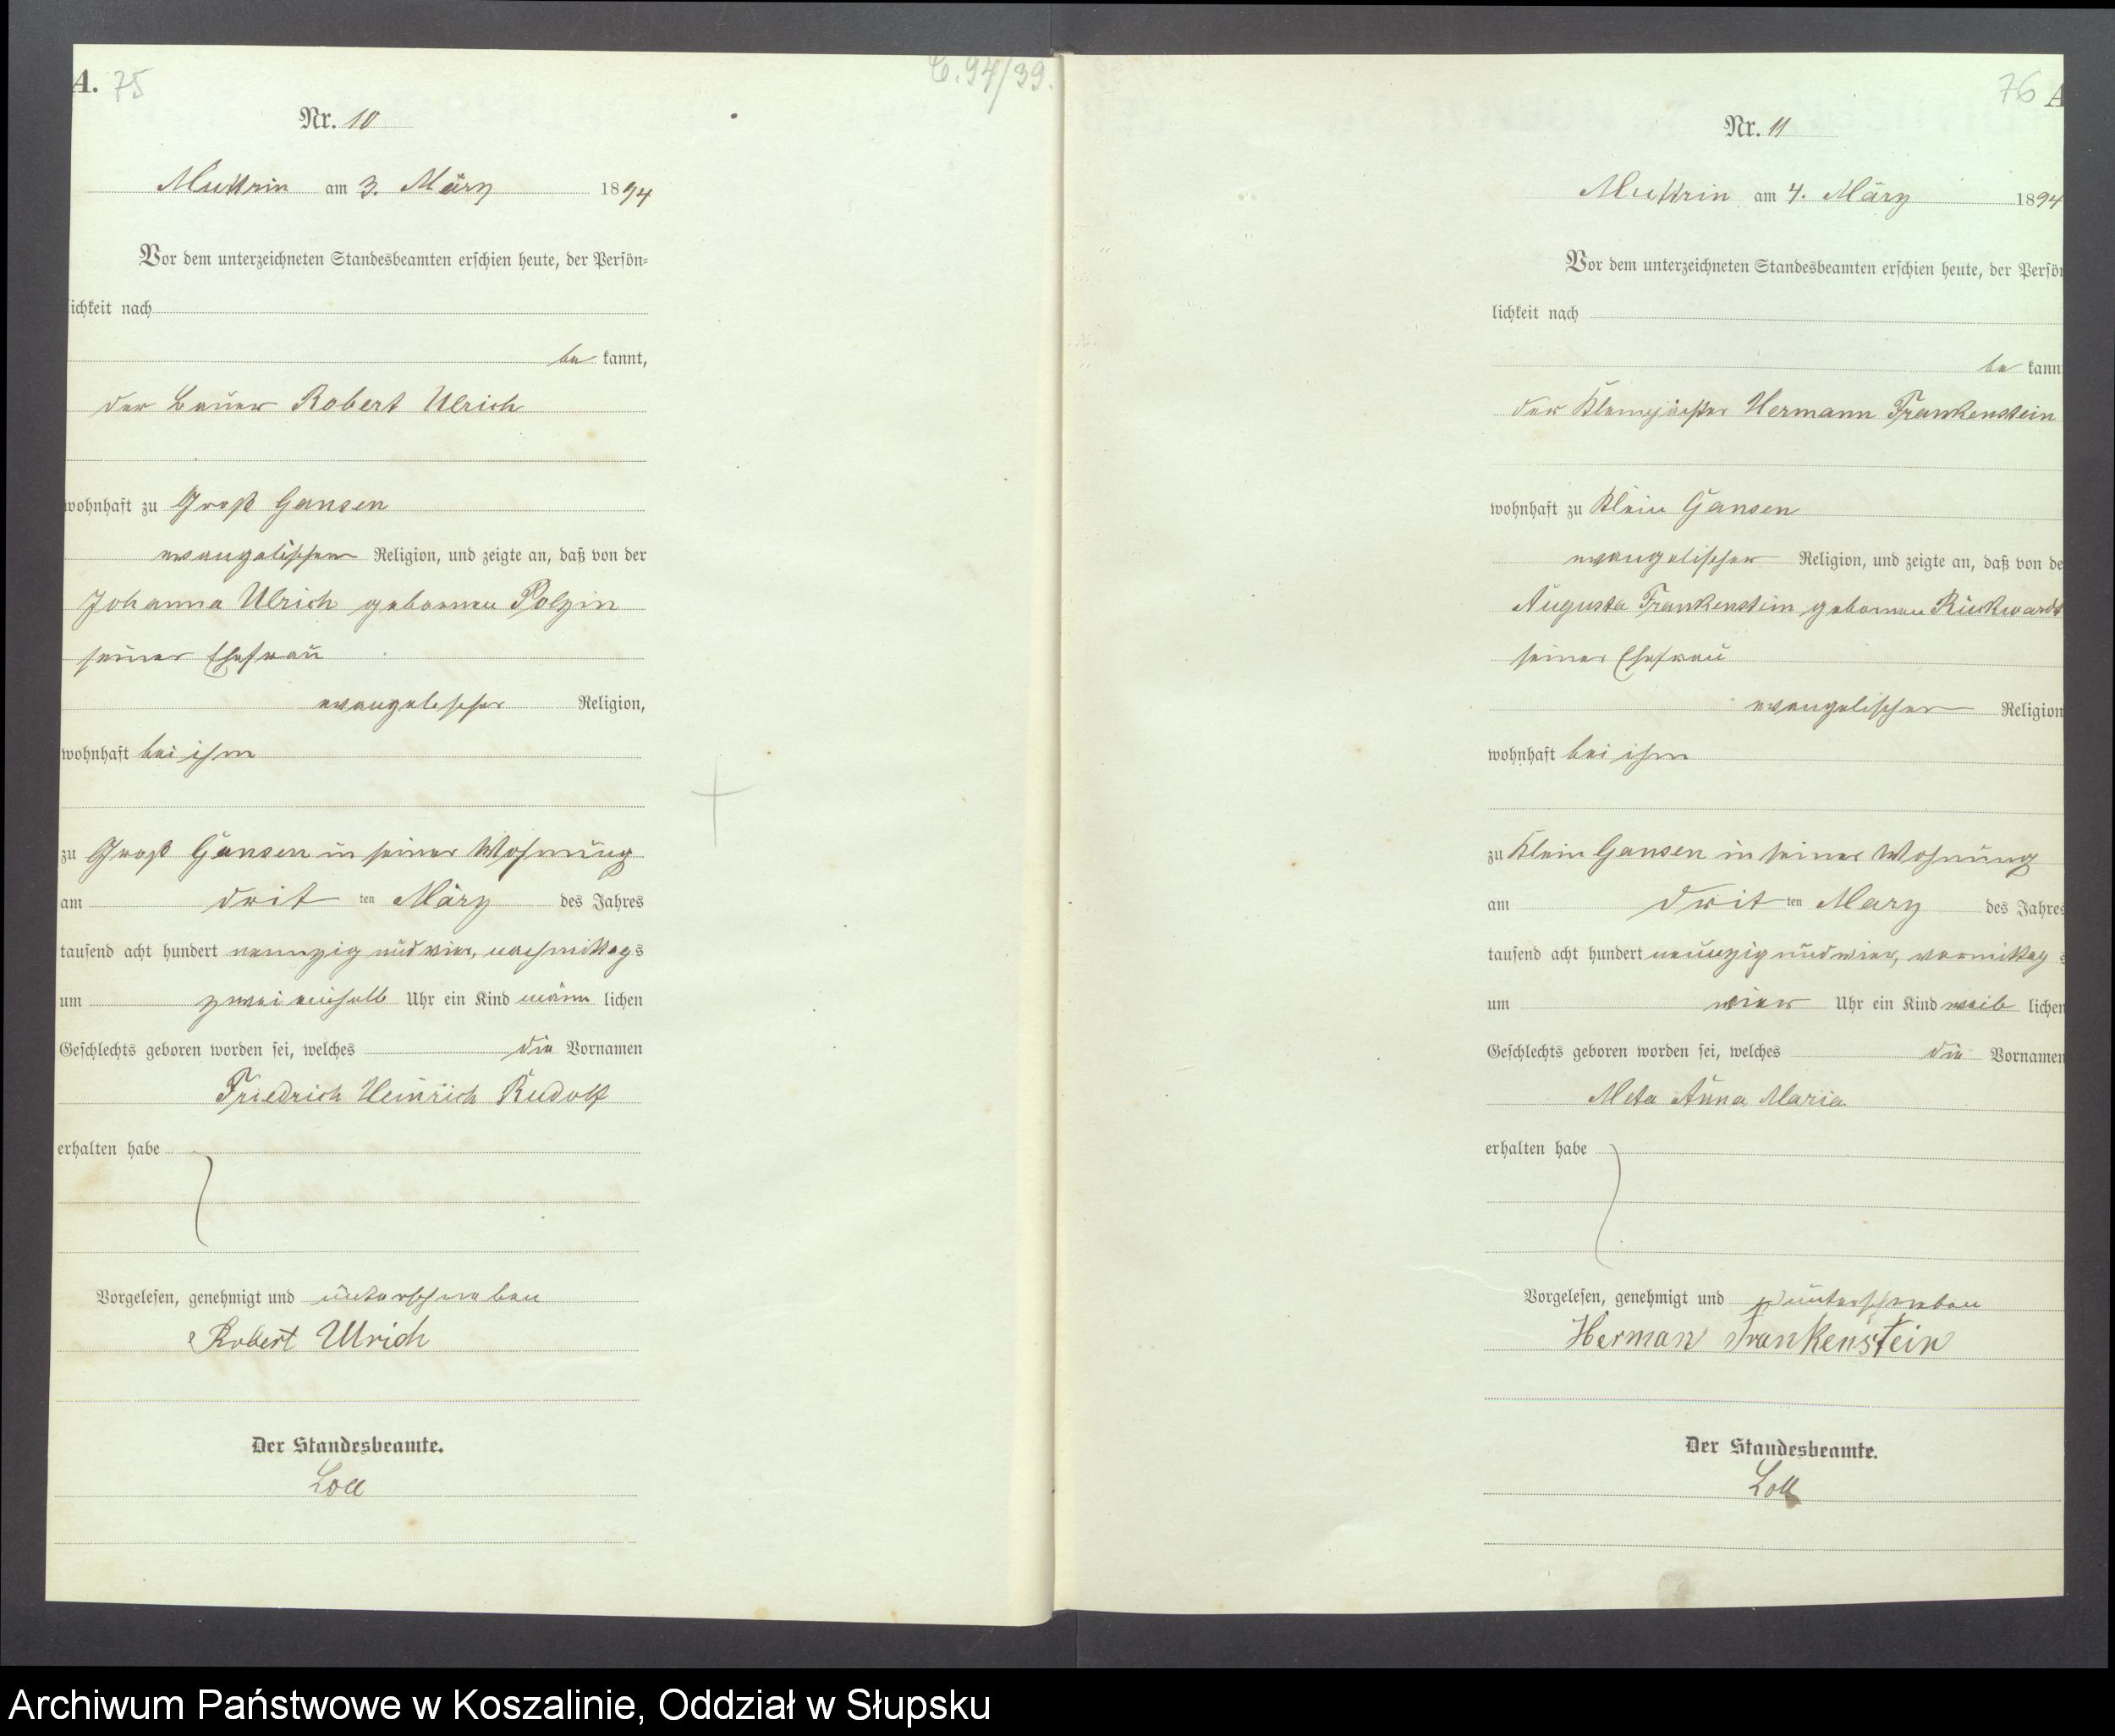 A. 75
C. 94/39.
Nr. 10
Muttrin am 3. März 1894
Vor dem unterzeichneten Standesbeamten erschien heute, der Persön=
lichkeit nach
be kannt,
der Bauer Robert Ulrich
wohnhaft zu Groß Gansen
evangelischer Religion, und zeigte an, daß von der
Johanna Ulrich geborenen Polzin
seiner Ehefrau
evangelischer Religion,
wohnhaft bei ihm
zu Groß Gansen in seiner Wohnung
am dritten März des Jahres
tausend acht hundert neunzig und vier, nachmittags
um zwei einhalb Uhr ein Kind männ lichen
Geschlechts geboren worden sei, welches die Vornamen
Friedrich Heinrich Rudolf
erhalten habe
Vorgelesen, genehmigt und unterschrieben
Robert Ulrich
Der Standesbeamte.
Loll
76 A
Nr. 11
Muttrin am 4. März 1894
Vor dem unterzeichneten Standesbeamten erschien heute, der Persön
lichkeit nach
be kann
der Hermann Frankenstein
wohnhaft zu Klein Gansen
evangelischer Religion, und zeigte an, daß von de
Augusta Frankenstein geborenen Rückwardt
seiner Ehefrau
evangelischer Religion
wohnhaft bei ihm
zu Klein Gansen in seiner Wohnung
am dritten März des Jahres
tausend acht hundert neunzig und vier, vormittag s
um vier Uhr ein Kind weib lichen
Geschlechts geboren worden sei, welches die Vornamen
Meta Anna Maria
erhalten habe
Vorgelesen, genehmigt und unterschrieben
Herman Frankenstein
Der Standesbeamte.
Loll
Archiwum Państwowe w Koszalinie, Oddział w Słupsku